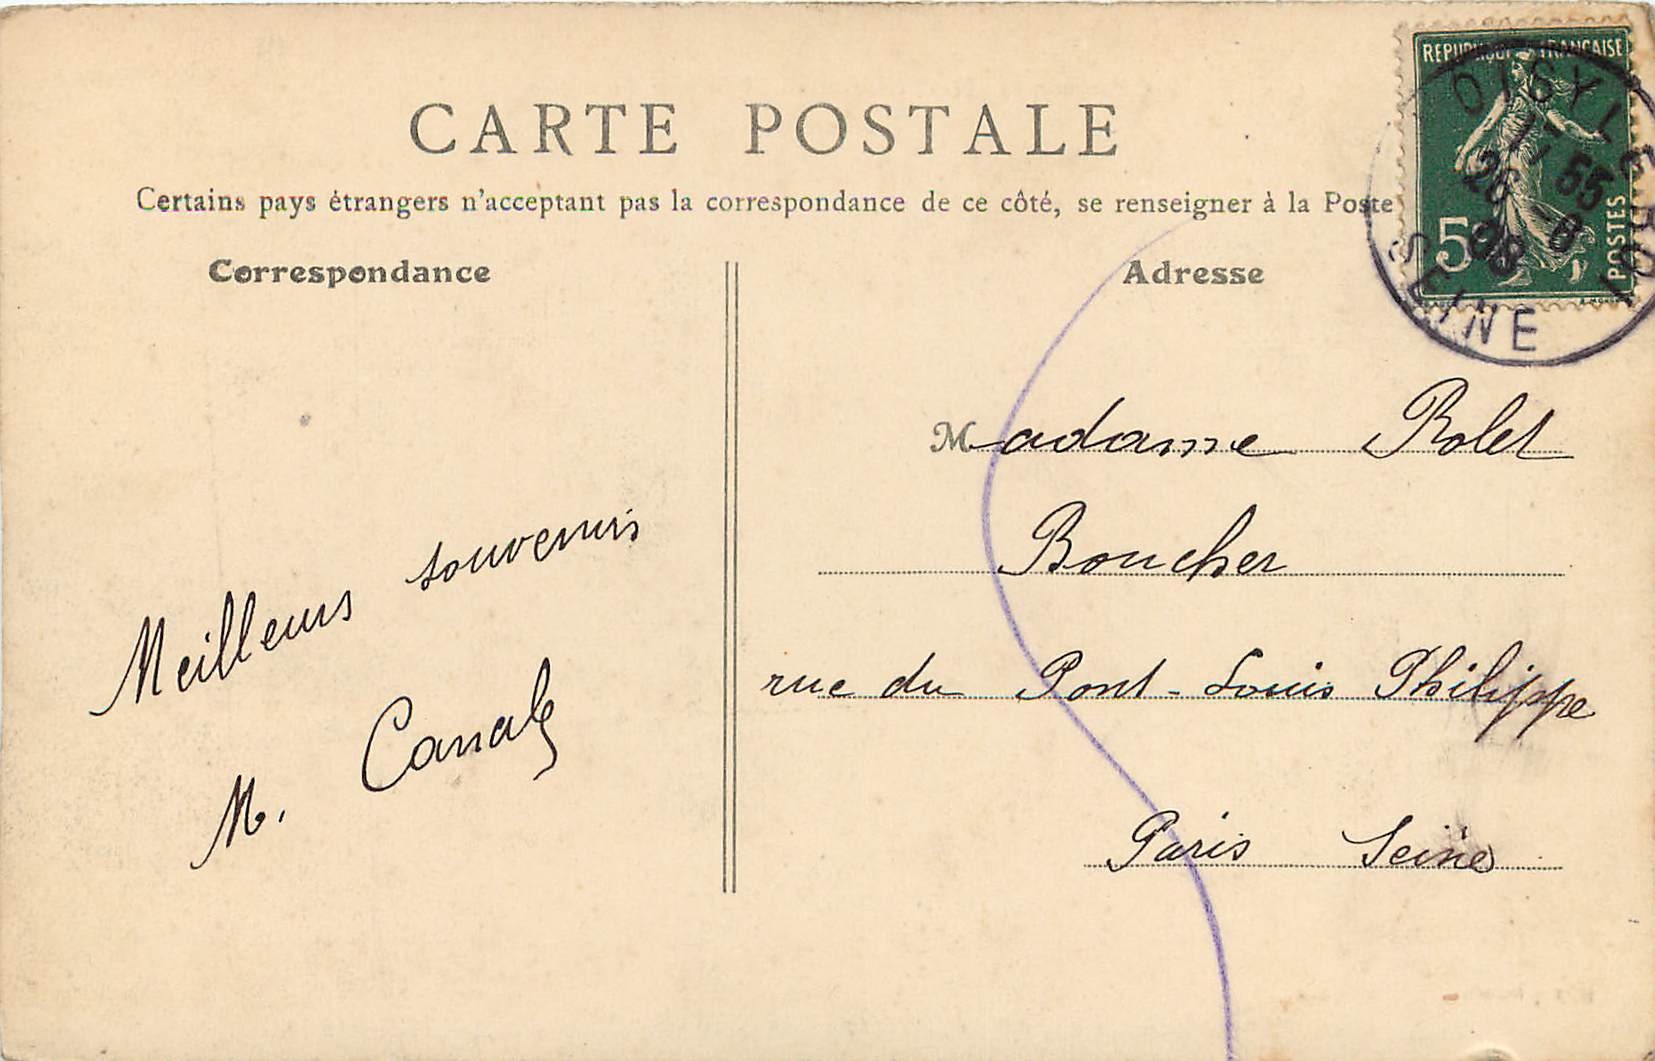 CARTE POSTALE
Certains pays étrangers n'acceptant pas la correspondance de ce côté, se renseigner à la Poste
REPUBLIQUE FRANÇAISE
5
POSTES
CHOISY LE ROI
SEINE
26 -8
08
55
Correspondance
Meilleurs souvenirs
M. Canals
Adresse
Madame Rolet
Boucher
rue du Pont-Louis Philippe
Paris Seine